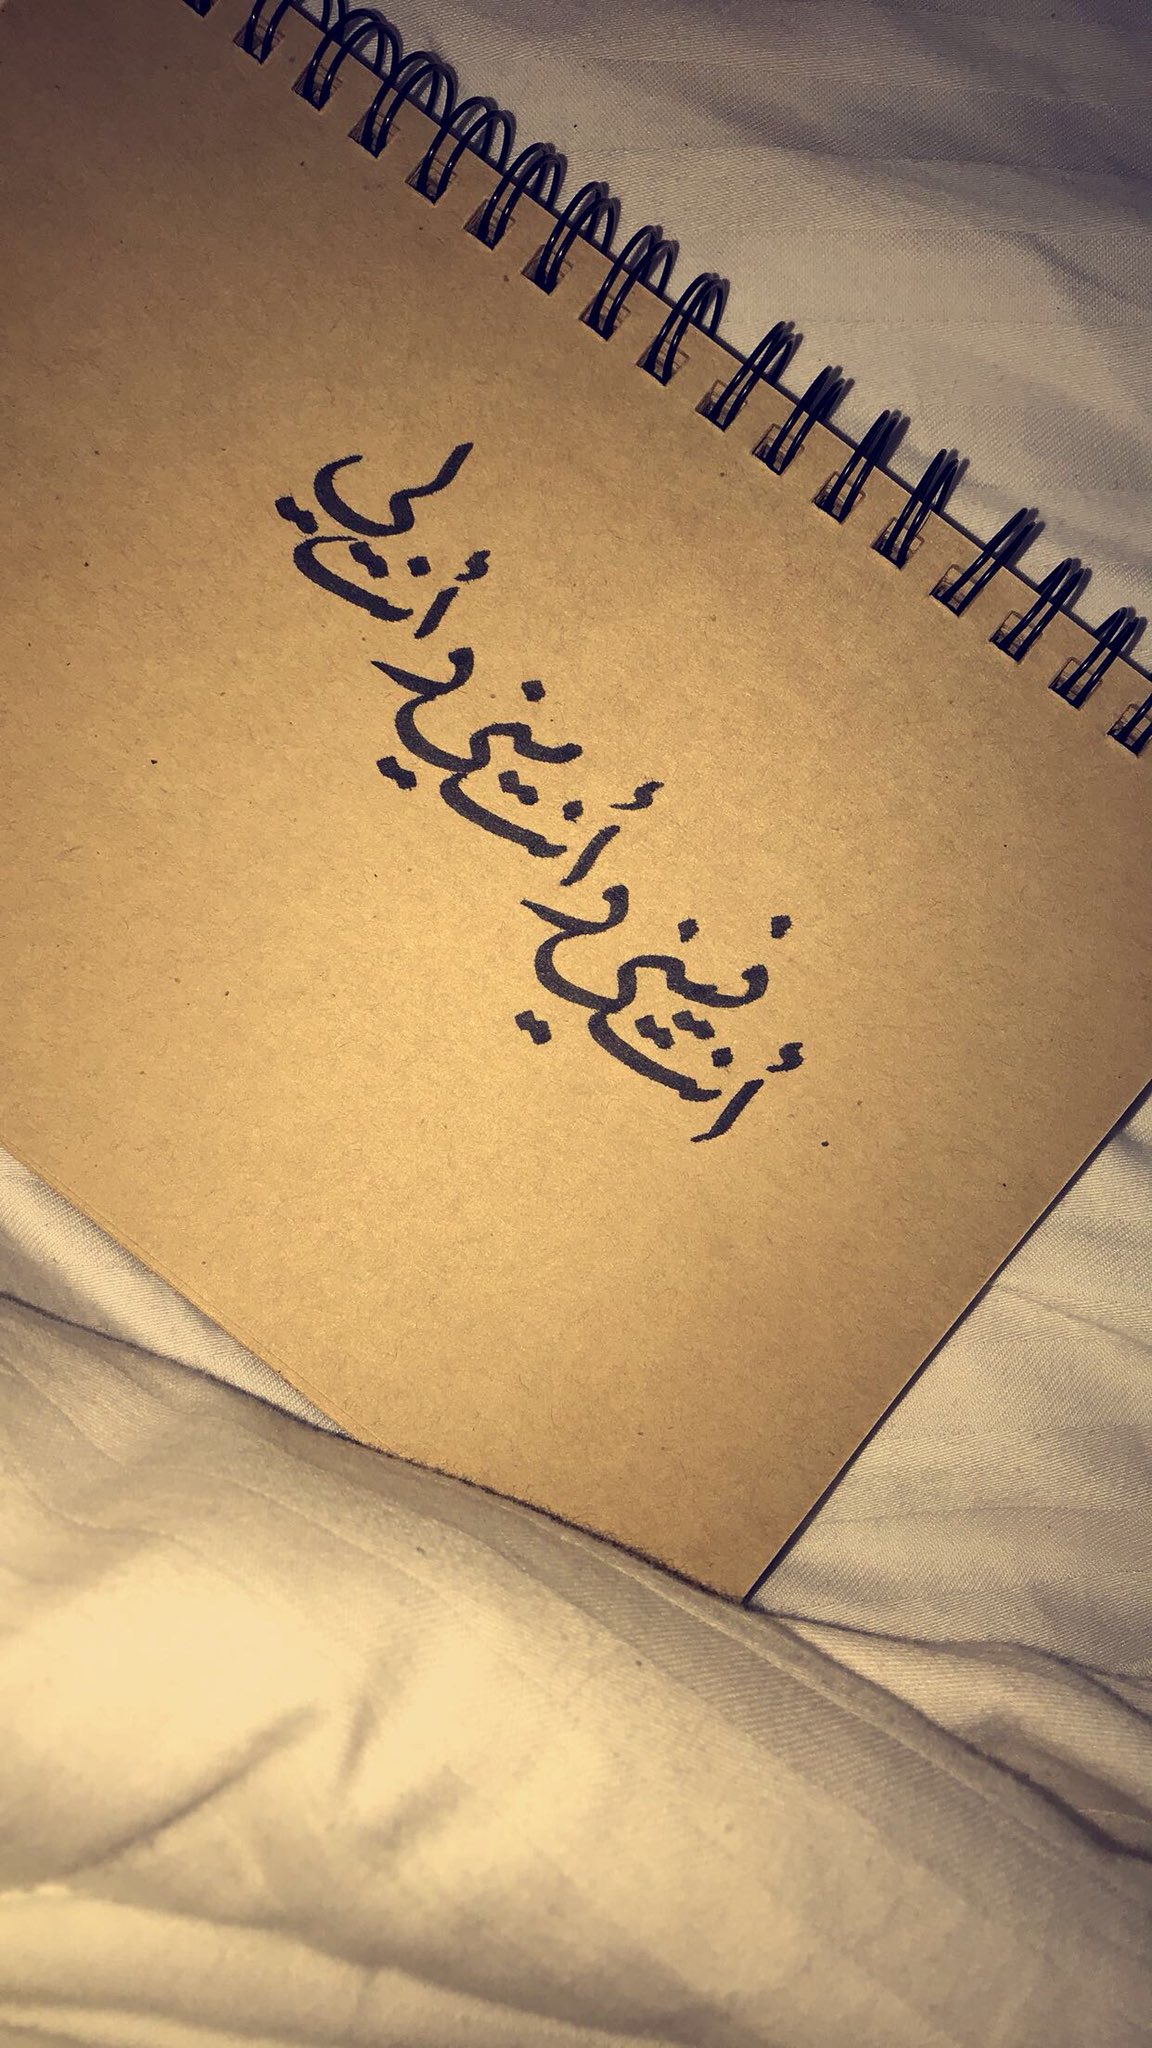 أنت فيني و أنت بيني و أنت لي